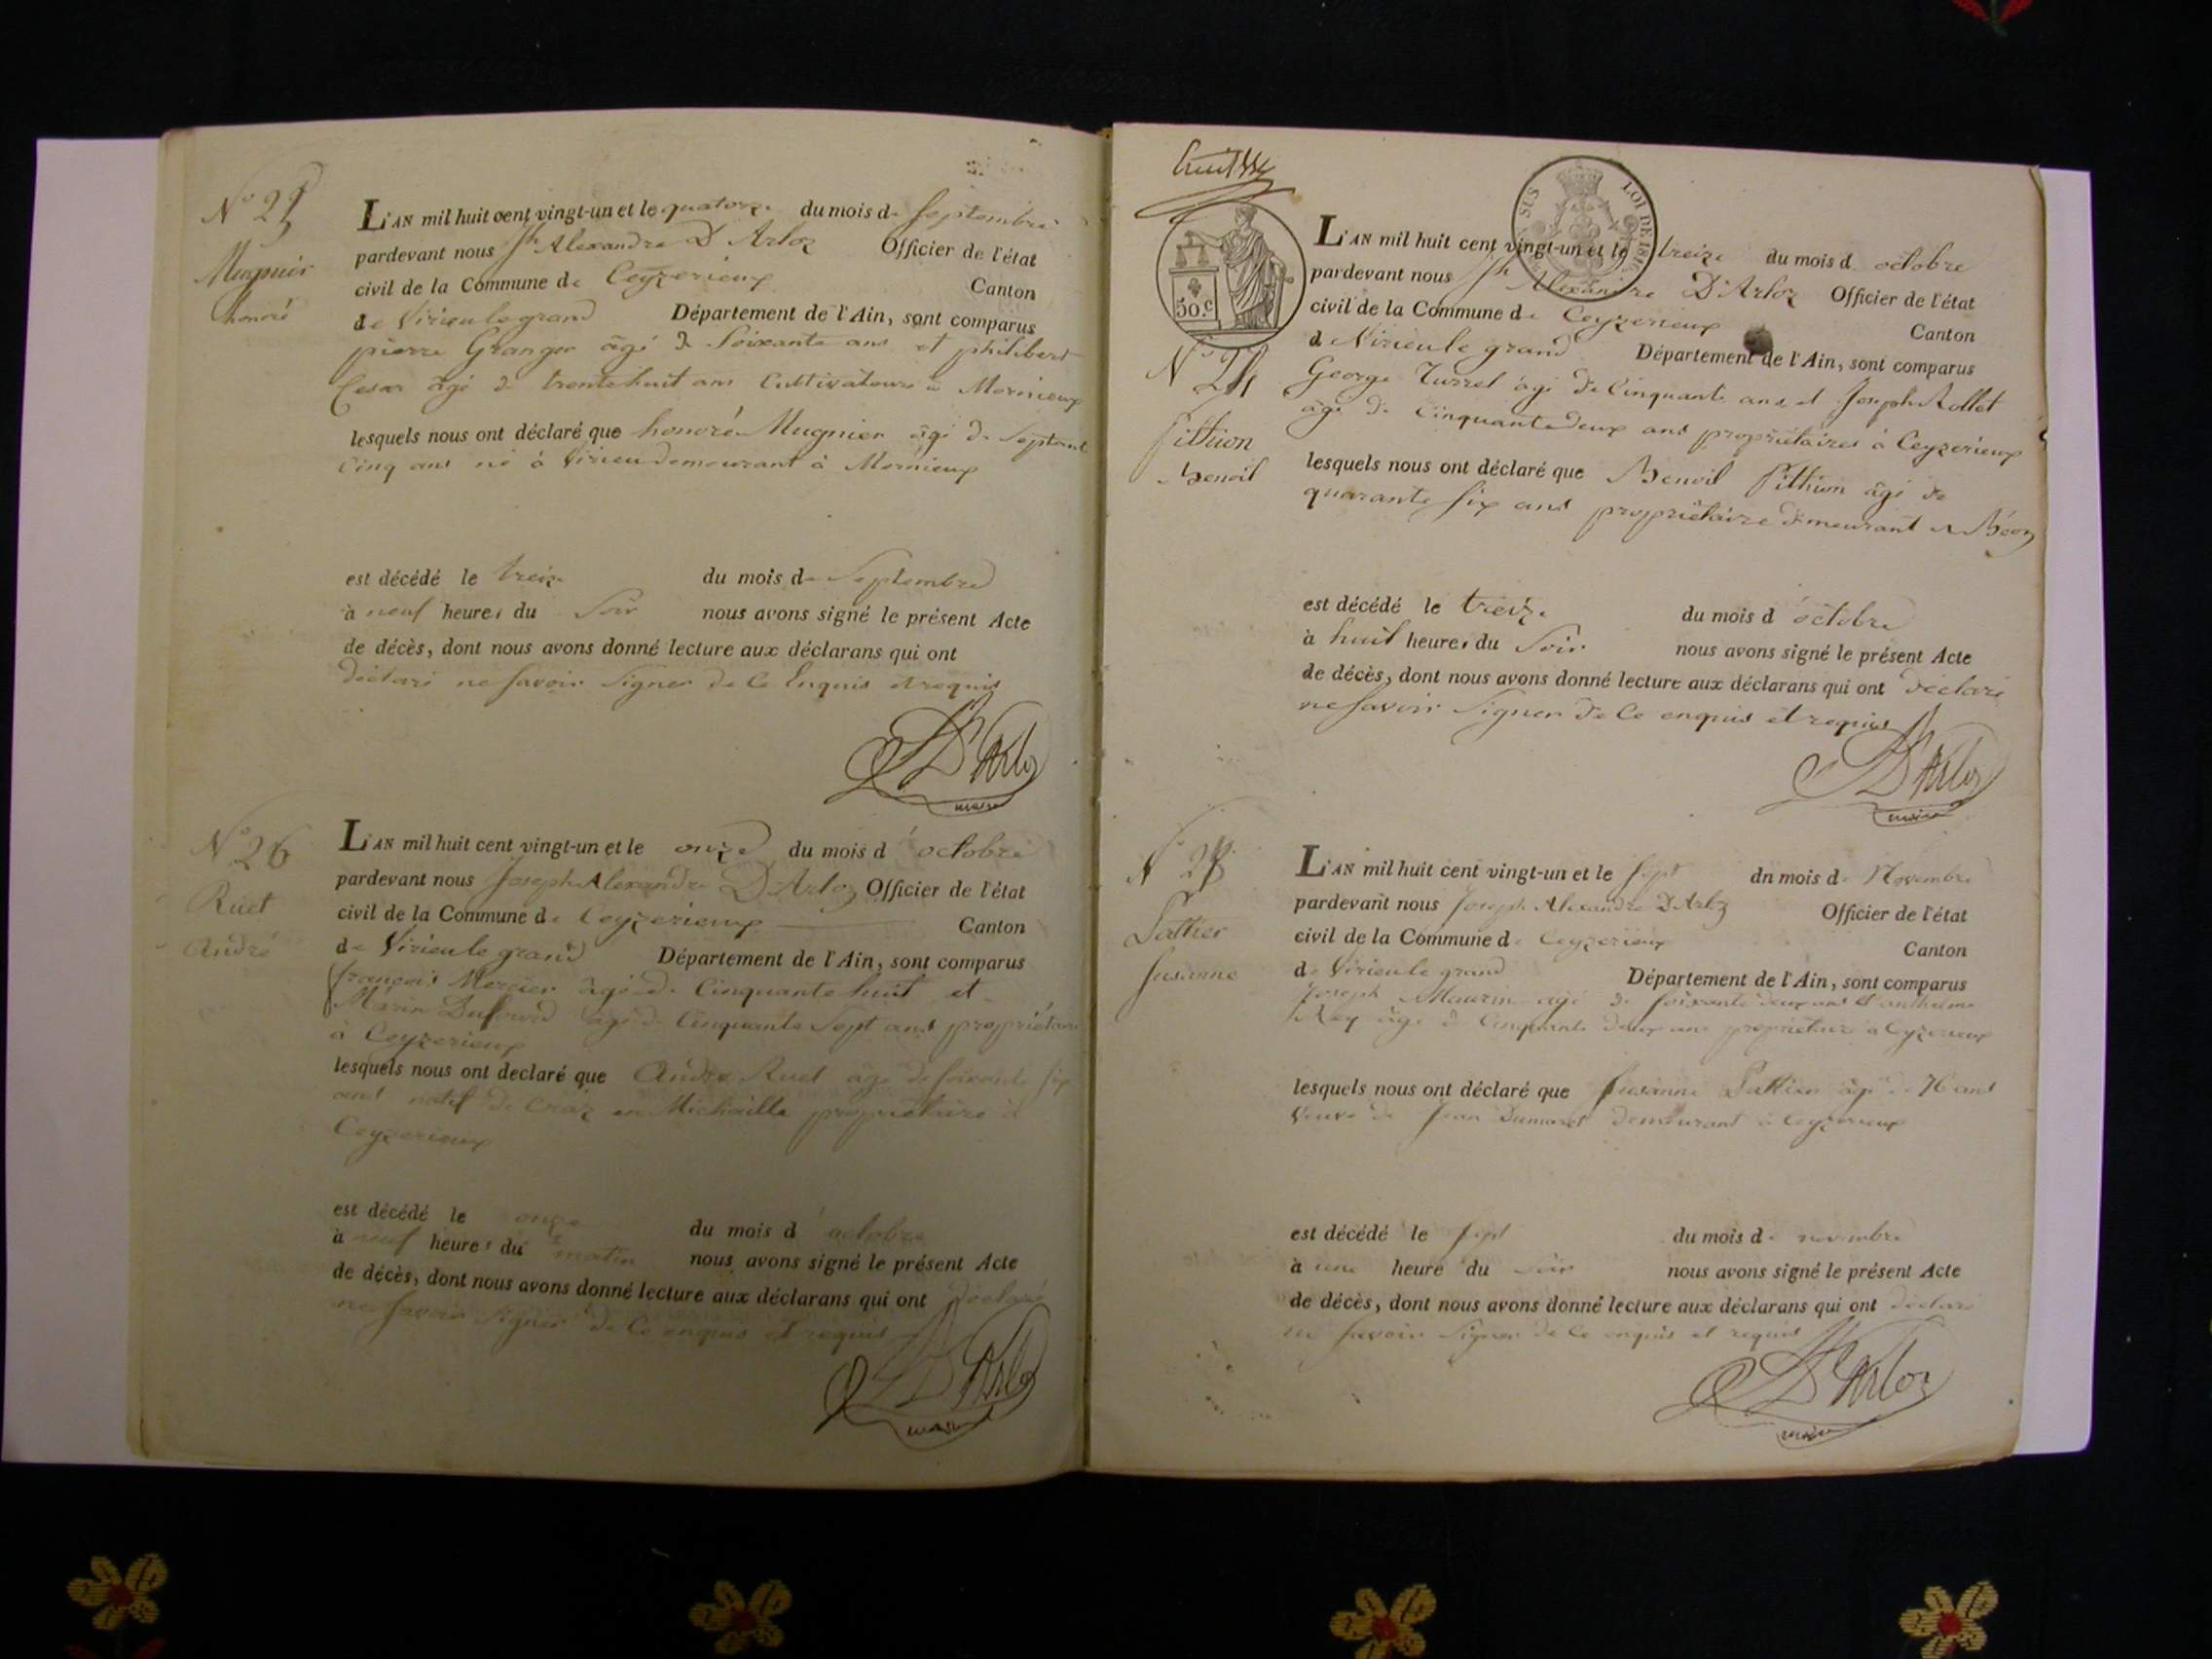 N.º 25
Mugnier
honoré
L'AN mil huit cent vingt-un et le quatorze du mois de Septembre
pardevant nous Jh Alexandre D'Arloz Officier de l'état
civil de la Commune de Ceyzerieux Canton
de Virieu le grand Département de l'Ain, sont comparus
pierre Granger âgé de Soixante ans et philibert
Cesar âgé de trente huit ans Cultivateurs à Mornieux
lesquels nous ont déclaré que honoré Mugnier âgé de Septante
Cinq ans né à Virieu demeurant à Mornieux
est décédé le treize du mois de Septembre
à neuf heures du Soir nous avons signé le présent Acte
de décès, dont nous avons donné lecture aux déclarans qui ont
déclaré ne Savoir Signer de Ce Enquis et requis
D'Arloz
maire
N.º 26
Ruet
André
L'AN mil huit cent vingt-un et le onze du mois d'octobre
pardevant nous Joseph Alexandre D'Arloz Officier de l'état
civil de la Commune de Ceyzerieux Canton
de Virieu le grand Département de l'Ain, sont comparus
françois Mercier âgé de Cinquante huit et
Marin Dufourd âgé de Cinquante Sept ans propriétaires
à Ceyzerieux
lesquels nous ont declaré que André Ruet âgé de Soixante six
ans natif de Craz en Michaille propriétaire à
Ceyzerieux
est décédé le onze du mois d'octobre
à neuf heures du matin nous avons signé le présent Acte
de décès, dont nous avons donné lecture aux déclarans qui ont déclaré
ne Savoir Signer de Ce enquis et requis
D'Arloz
maire
SUS LOI DE 1816
50.c
N.º 27
Pithion
Benoit
L'AN mil huit cent vingt-un et le treize du mois d'octobre
pardevant nous Jh Alexandre D'Arloz Officier de l'état
civil de la Commune de Ceyzerieux Canton
de Virieu le grand Département de l'Ain, sont comparus
George Turrel âgé de Cinquante ans et Joseph Rollet
âgé de Cinquante deux ans propriétaires à Ceyzerieux
lesquels nous ont déclaré que Benoit Pithion âgé de
quarante Six ans propriétaire demeurant à Béon
est décédé le treize du mois d'octobre
à huit heures du Soir nous avons signé le présent Acte
de décès, dont nous avons donné lecture aux déclarans qui ont déclaré
ne Savoir Signer de Ce enquis et requis
D'Arloz
maire
N.º 28
Pattier
Susanne
L'AN mil huit cent vingt-un et le Sept dn mois de Novembre
pardevant nous Joseph Alexandre D'Arloz Officier de l'état
civil de la Commune de Ceyzerieux Canton
de Virieu le grand Département de l'Ain, sont comparus
Joseph Maurin âgé de Soixante deux ans et anthelme
Rey âgé de Cinquante deux ans propriétaires à Ceyzerieux
lesquels nous ont déclaré que Susanne Pattier âgée de 76 ans
Veuve de Jean Dumaret demeurant à Ceyzerieux
est décédé le Sept du mois de novembre
à une heure du Soir nous avons signé le présent Acte
de décès, dont nous avons donné lecture aux déclarans qui ont déclaré
ne Savoir Signer de Ce enquis et requis
D'Arloz
maire